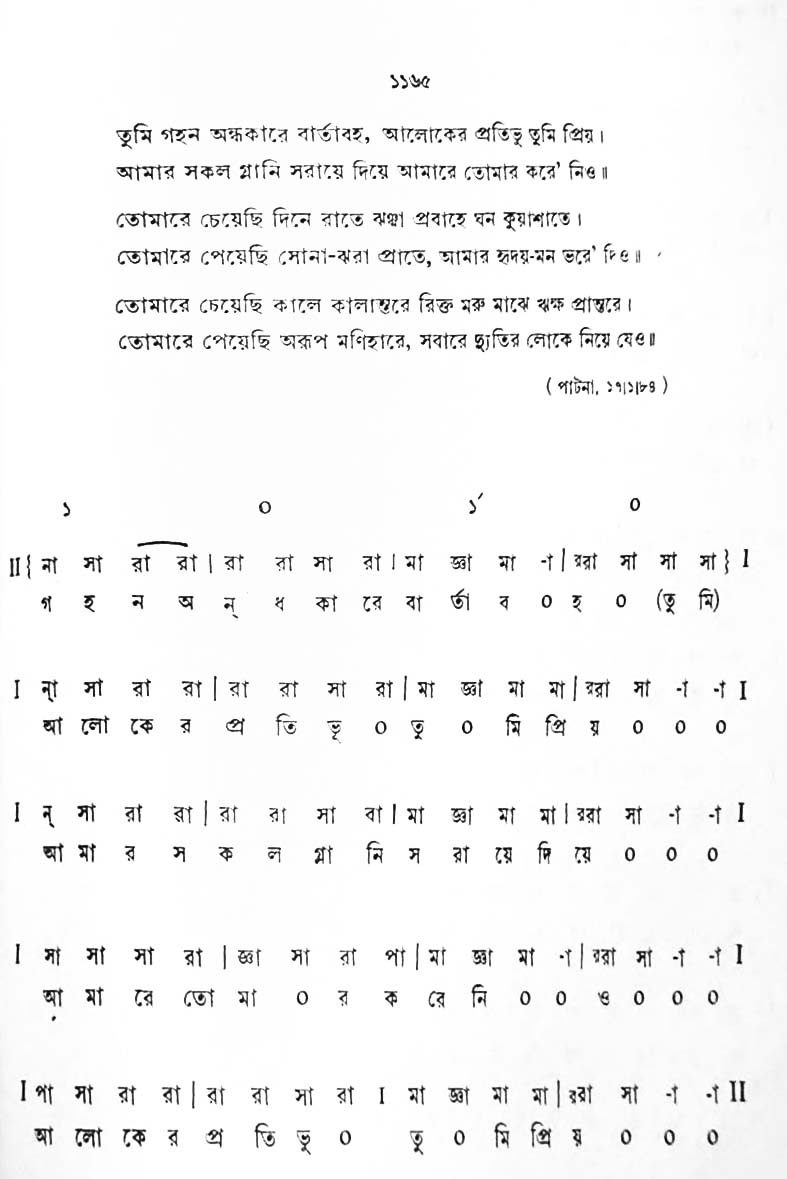 ১১৬৫
তুমি গহন অন্ধকারে বার্তাবহ, আলোকের প্রতিভূ তুমি প্রিয়।
আমার সকল গ্লানি সরায়ে দিয়ে আমারে তোমার করে' নিও॥
তোমারে চেয়েছি দিনে রাতে ঝঞ্ঝা প্রবাহে ঘন কুয়াশাতে।
তোমারে পেয়েছি সোনা-ঝরা প্রাতে, আমার হৃদয়-মন ভরে' দিও॥
তোমারে চেয়েছি কালে কালান্তরে রিক্ত মরু মাঝে ঋক্ষ প্রান্তরে।
তোমারে পেয়েছি অরূপ মণিহারে, সবারে দ্যুতির লোকে নিয়ে যেও॥
(পাটনা, ১৭।১।৮৪)
১ ০ ১´ ০
II { না সা রা রা | রা রা সা রা | মা জ্ঞা মা -া | ররা সা সা সা } I
গ হ ন অ ন্ ধ কা রে বা র্তা ব ০ হ ০ (তু মি)
I ন্া সা রা রা | রা রা সা রা | মা জ্ঞা মা মা | ররা সা -া -া I
আ লো কে র প্র তি ভূ ০ তু ০ মি প্রি য় ০ ০ ০
I ন্ সা রা রা | রা রা সা বা | মা জ্ঞা মা মা | ররা সা -া -া I
আ মা র স ক ল গ্লা নি স রা য়ে দি য়ে ০ ০ ০
I সা সা সা রা | জ্ঞা সা রা পা | মা জ্ঞা মা -া | ররা সা -া -া I
আ মা রে তো মা ০ র ক রে নি ০ ০ ও ০ ০ ০
I পা সা রা রা | রা রা সা রা I মা জ্ঞা মা মা | ররা সা -া -া II
আ লো কে র প্র তি ভূ ০ তু ০ মি প্রি য় ০ ০ ০